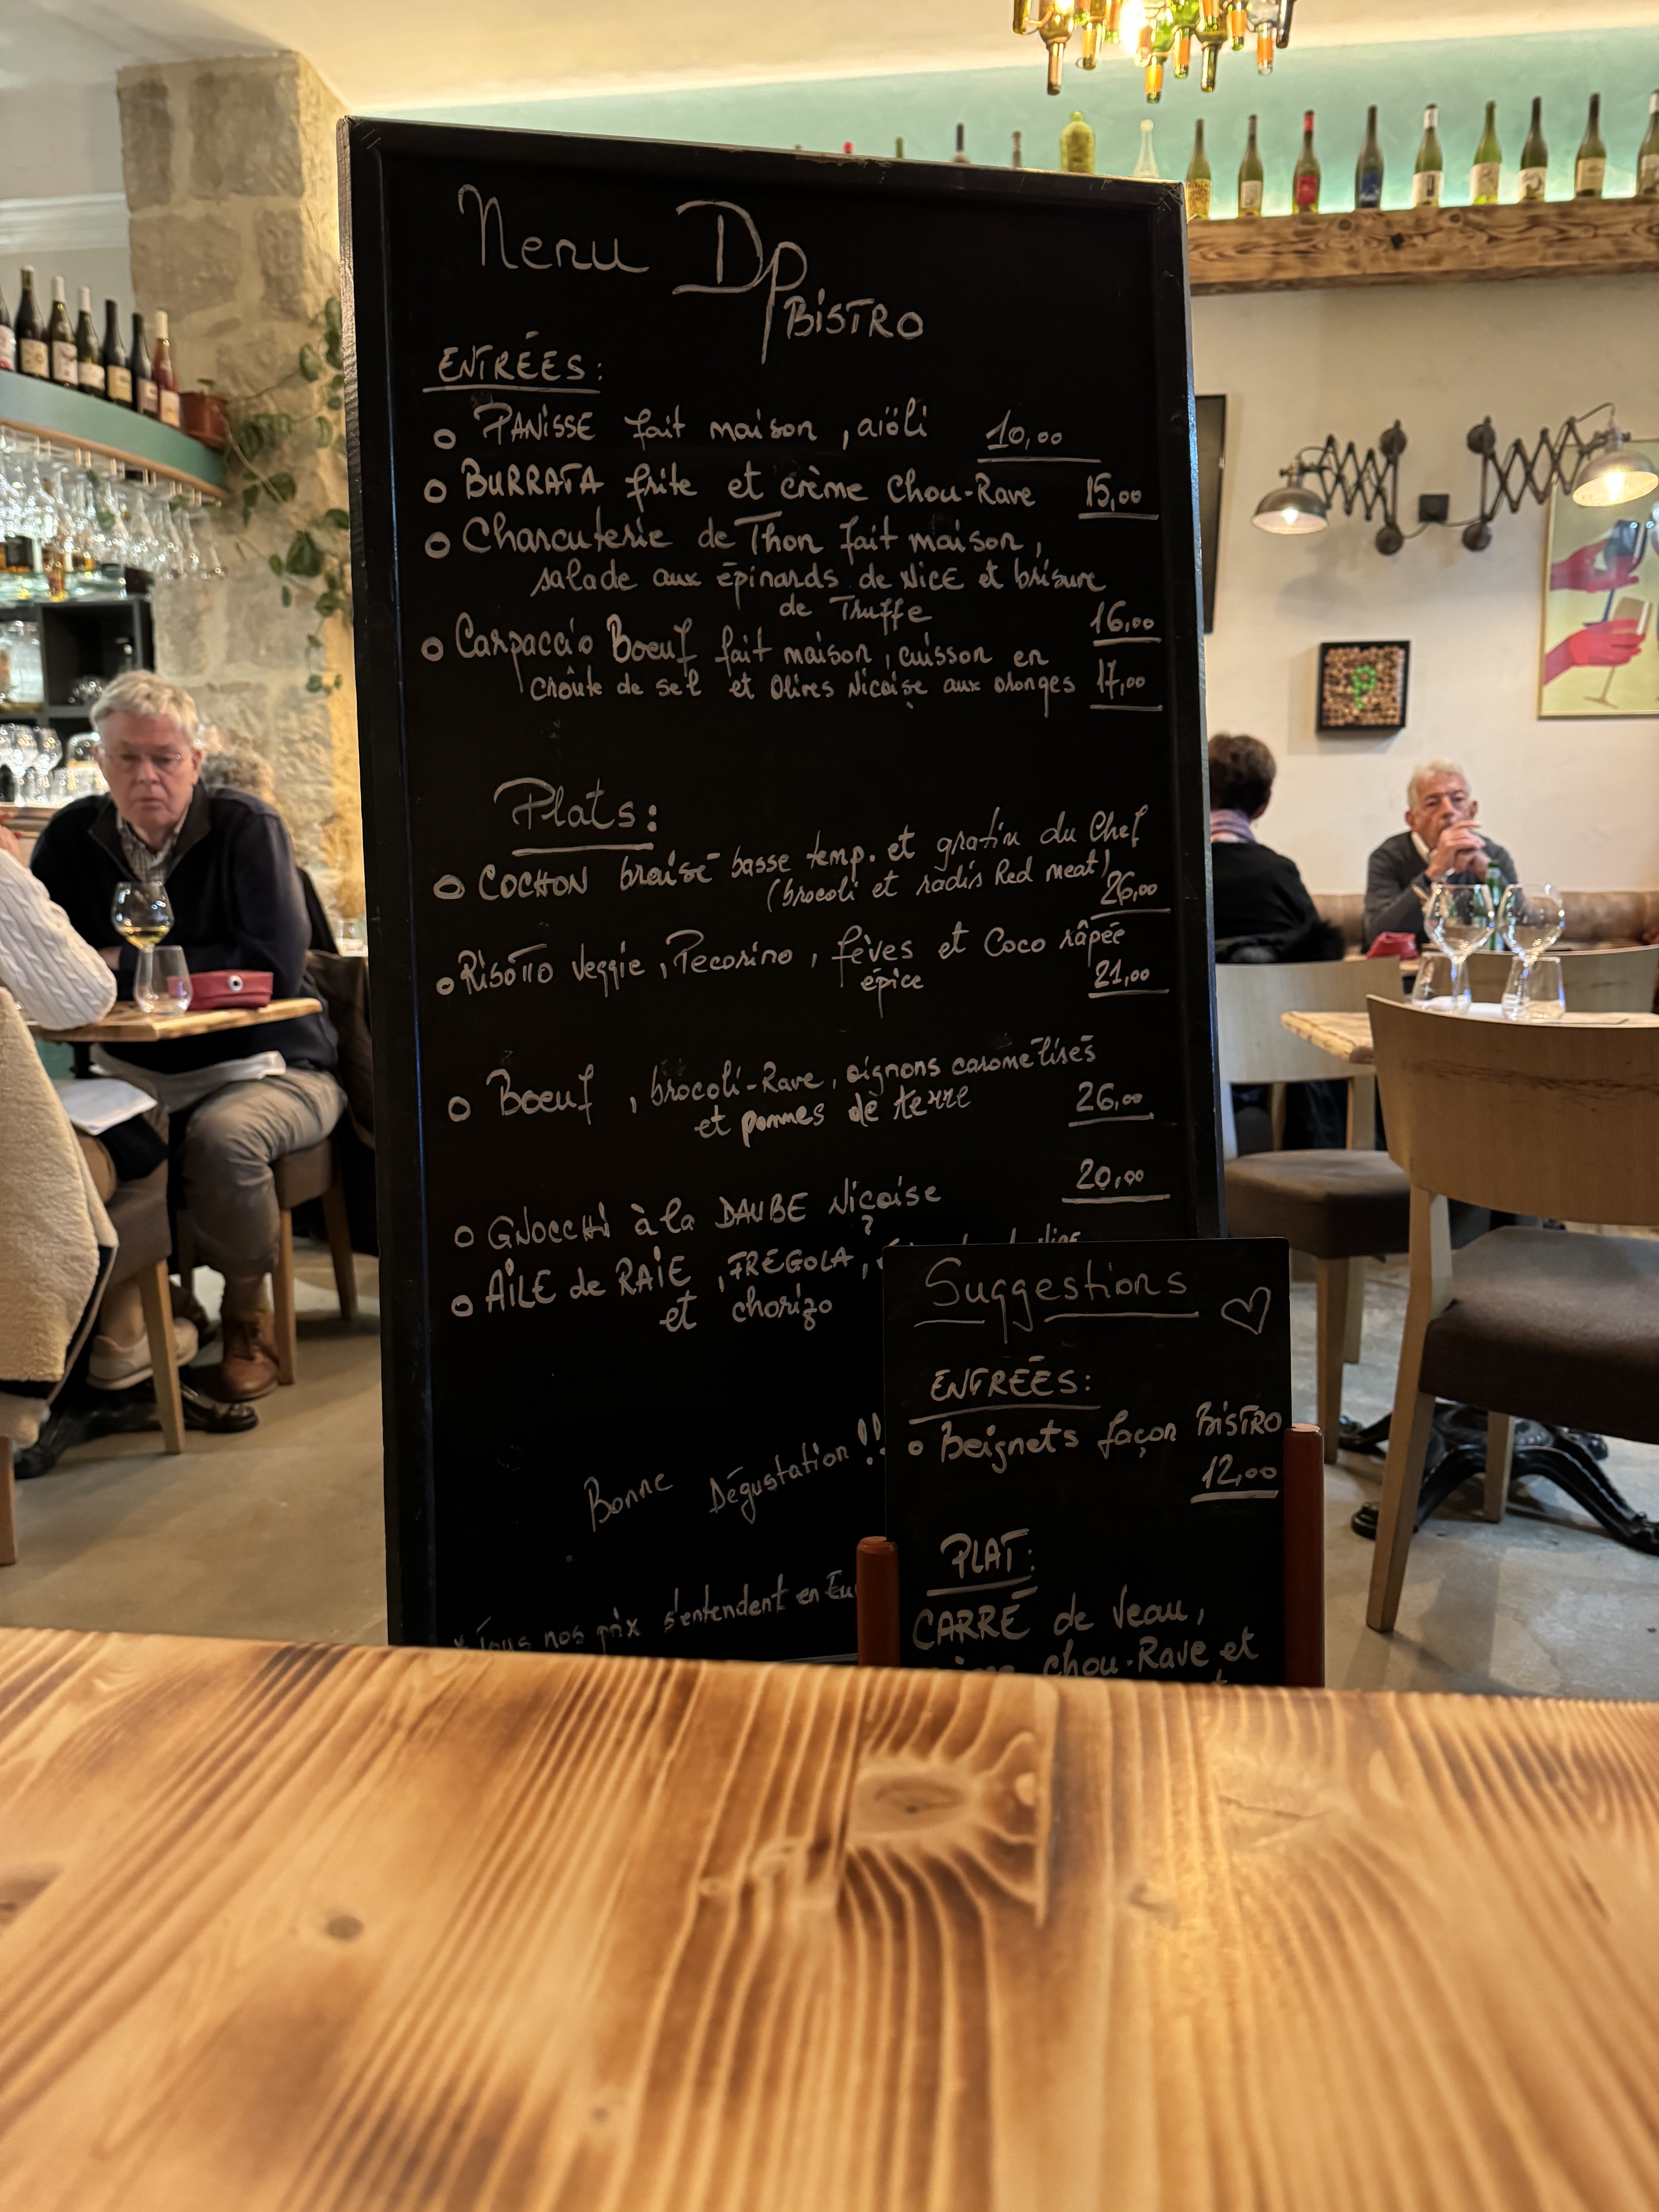 Menu DP BiSTRO
ENTRÉES:
PANiSSE fait maison, aïoli 10,00
BURRATA frite et crème Chou-Rave 15,00
Charcuterie de Thon fait maison,
salade aux épinards de NiCE et brisure
de Truffe 16,00
Carpaccio Boeuf fait maison, cuisson en
croûte de sel et Olives Niçoise aux oranges 17,00
Plats:
COCHON braisé basse temp. et gratin du Chef
(brocoli et radis Red meat) 26,00
Risotto Veggie, Pecorino, fèves et Coco râpée
épice 21,00
Boeuf, brocoli-Rave, oignons caramélisés
et pommes de terre 26,00
GNOCCHi à la DAUBE Niçoise 20,00
AiLE de RAiE, FREGOLA,
et chorizo
Bonne Dégustation !!
* Tous nos prix s'entendent en
Suggestions
ENTRÉES:
Beignets façon BiSTRO
12,00
PLAT:
CARRÉ de Veau,
chou-Rave et
P